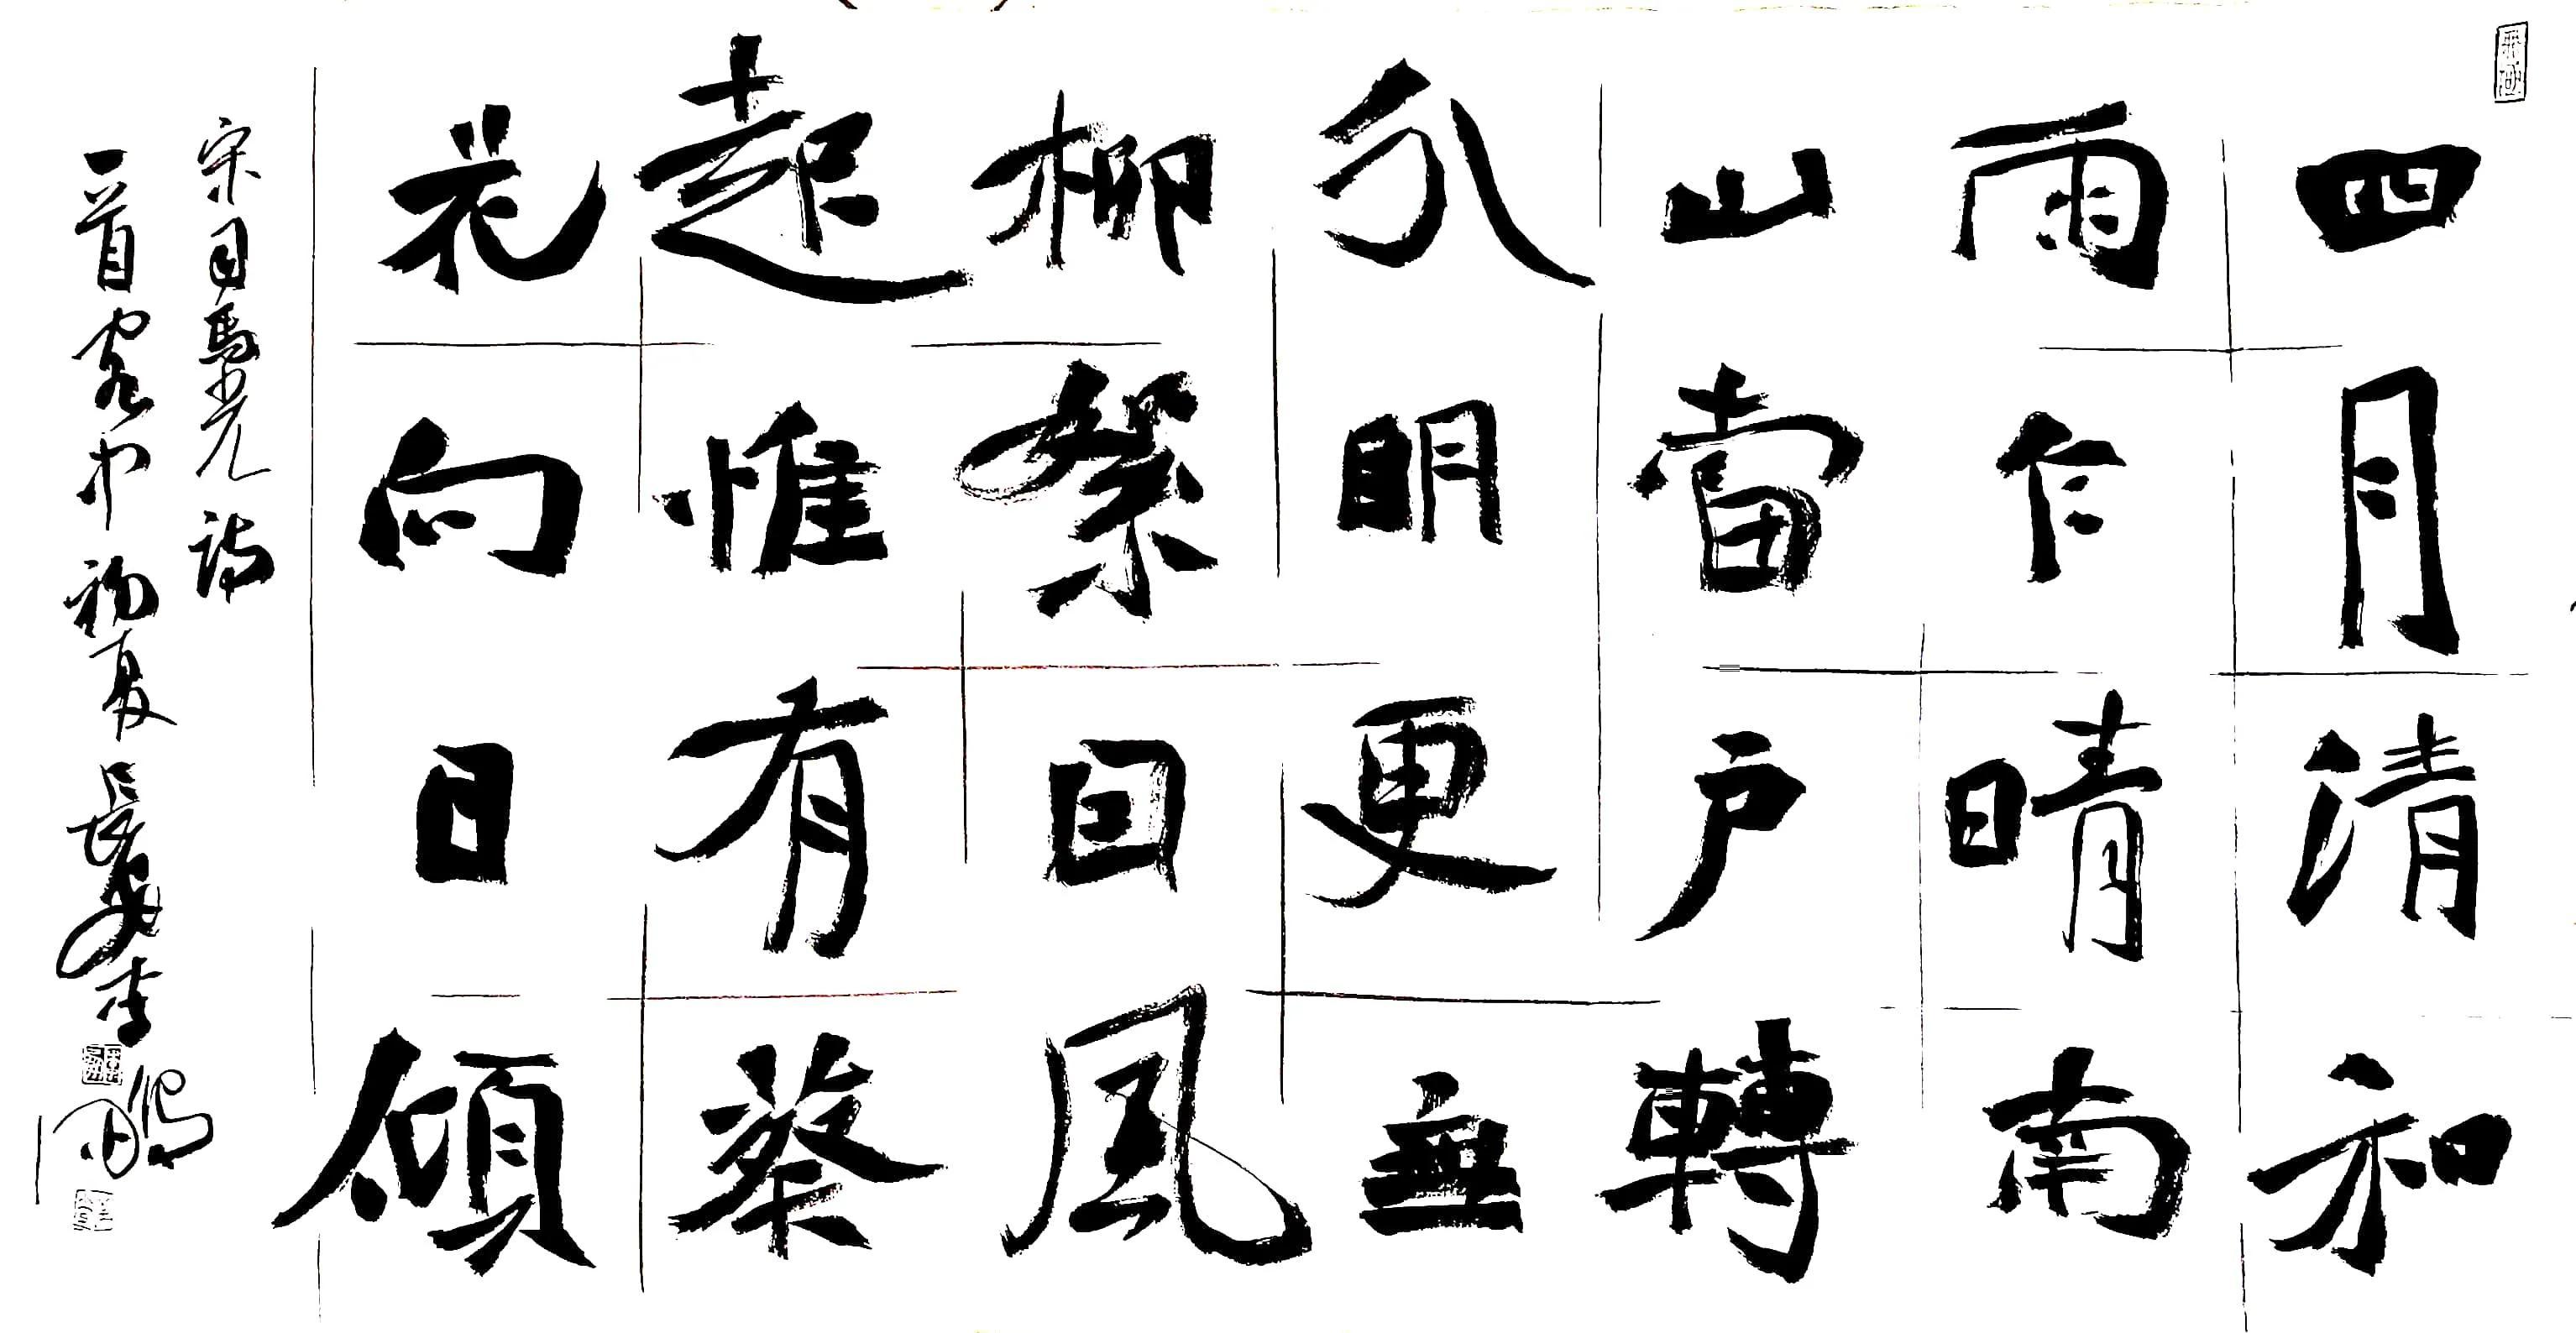 四月清和
雨乍晴南
山當户轉
分明更無
柳絮因風
起惟有葵
花向日傾
宋司馬光詩
一首客中初夏長安李鵬